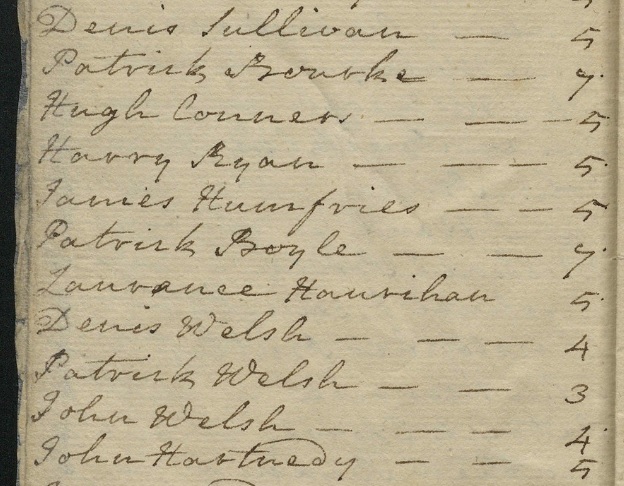 Denis Sullivan — 5
Patrick Bourke — 7
Hugh Conners — — — 5
Harry Ryan — — — 5
James Humfries — — — 5
Patrick Boyle — — — 7
Laurance Hourihan 5
Denis Welsh — — — 4
Patrick Welsh — — — 3
John Welsh — — — 4
John Hartnedy — — 5